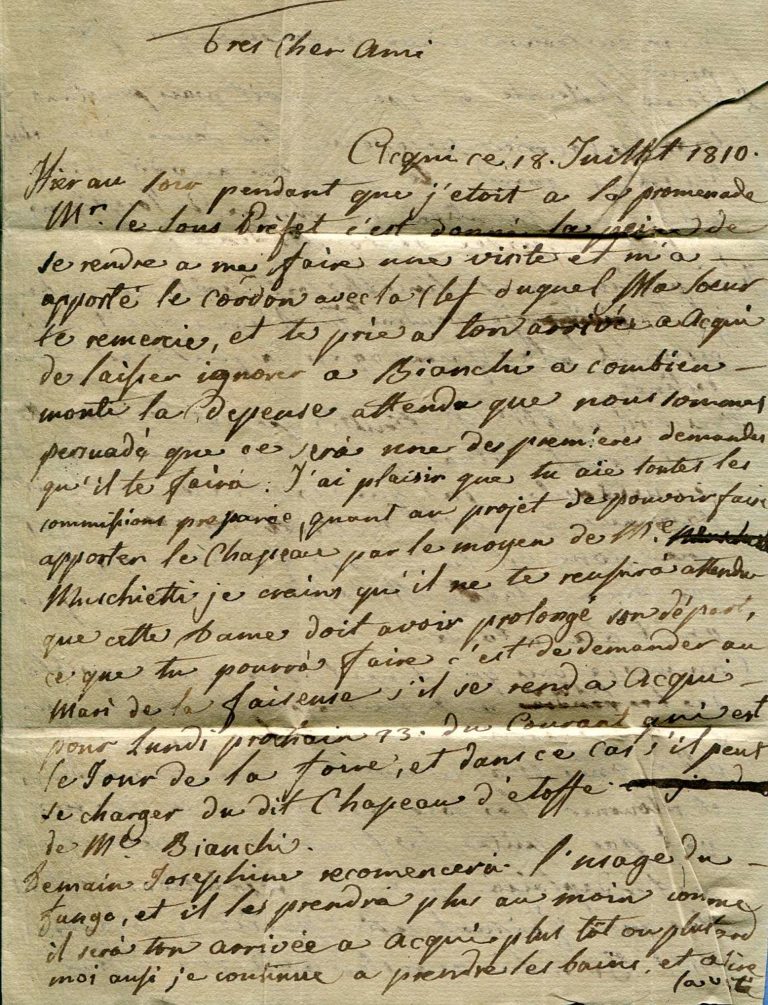 tres Cher Ami
Acqui ce 18. Juillet 1810.
Hier au soir pendant que j'etoit a la promenade
Mr. le Sous Prèfet c'est donné la peine de
se rendre a me faire une visite et m'a
apporté le cordon avec la Clef duquel Ma Soeur
te remercie, et te prie a ton arrivée a Acqui
de laisser ignorer a Bianchi a combien
monte la depense attendu que nous sommes
persuadé que ce serà une des premieres demandes
qu'il te fairà. J'ai plaisir que tu aïe toutes les
commissions preparée, quant au projet de pouvoir faire
apporter le Chapeau par le moyen de Me.
Muschietti je crains qu'il ne te reussirà attendu
que cette Dame doit avoir prolongé son départ,
ce que tu pourrà faire c'est de demander au
Mari de la faiseuse s'il se rend a Acqui
pour Lundi prochain 23. du Courant qui est
le Jour de la foire, et dans ce cas s'il peut
se charger du dit Chapeau d'étoffe
de Me Bianchi.
Demain Josephine recomencerà l'usage du
fango, et il les prendrà plus au moin comme
il serà ton arrivée a Acqui plus tôt ou plus tard
moi aussi je continue a prendre les bains, et a
la